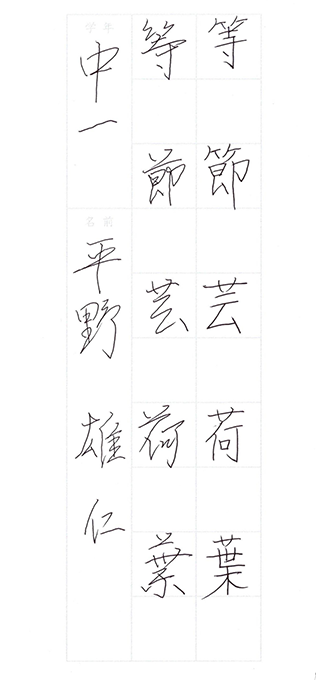 等節芸荷葉
等節芸荷葉
学年
中一
名前
平野雄仁